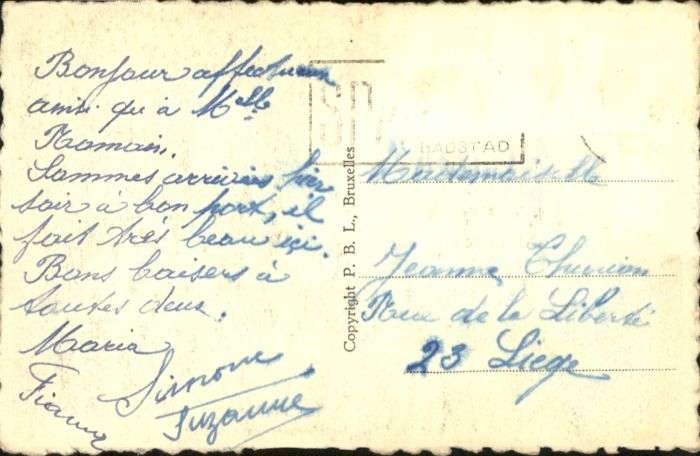 Bonjour affectueux
ainsi qu'à Melle
Romain.
Sommes arrivées hier
soir à bon port, il
fait très beau içi.
Bons baisers à
toutes deux.
Maria
Simone
Suzanne
SPA
BADSTAD
Copyright P. B. L., Bruxelles
Mademoiselle
Jeanne
Rue de la Liberté
23 Liege